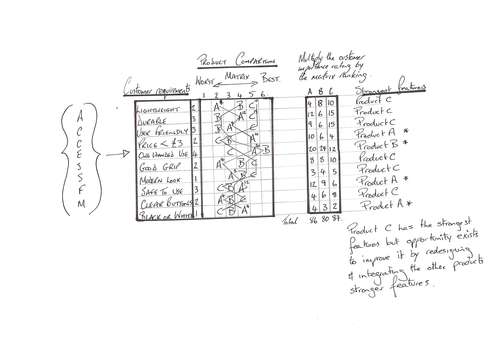 PRODUCT COMPARISON
MATRIX
WORST BEST
1 2 3 4 5 6
Multiply the customer
importance rating by
the matrix ranking.
Customer requirements
A B C
Strongest features
LIGHTWEIGHT 2 4 8 10 Product C
DURABLE 3 12 6 15 Product C
USER FRIENDLY 3 9 6 15 Product C
PRICE < £3 2 10 6 4 Product A *
ONE HANDED USE 4 20 24 12 Product B *
GOOD GRIP 2 8 5 10 Product C
MODERN LOOK 1 3 4 5 Product C
SAFE TO USE 3 12 9 6 Product A *
CLEAR BUTTONS 2 4 6 8 Product C
BLACK OR WHITE 1 4 3 2 Product A *
Total 86 80 87
A
C
C
E
S
S
F
M
Product C has the strongest
features but opportunity exists
to improve it by redesigning
& integrating the other products
stronger features.